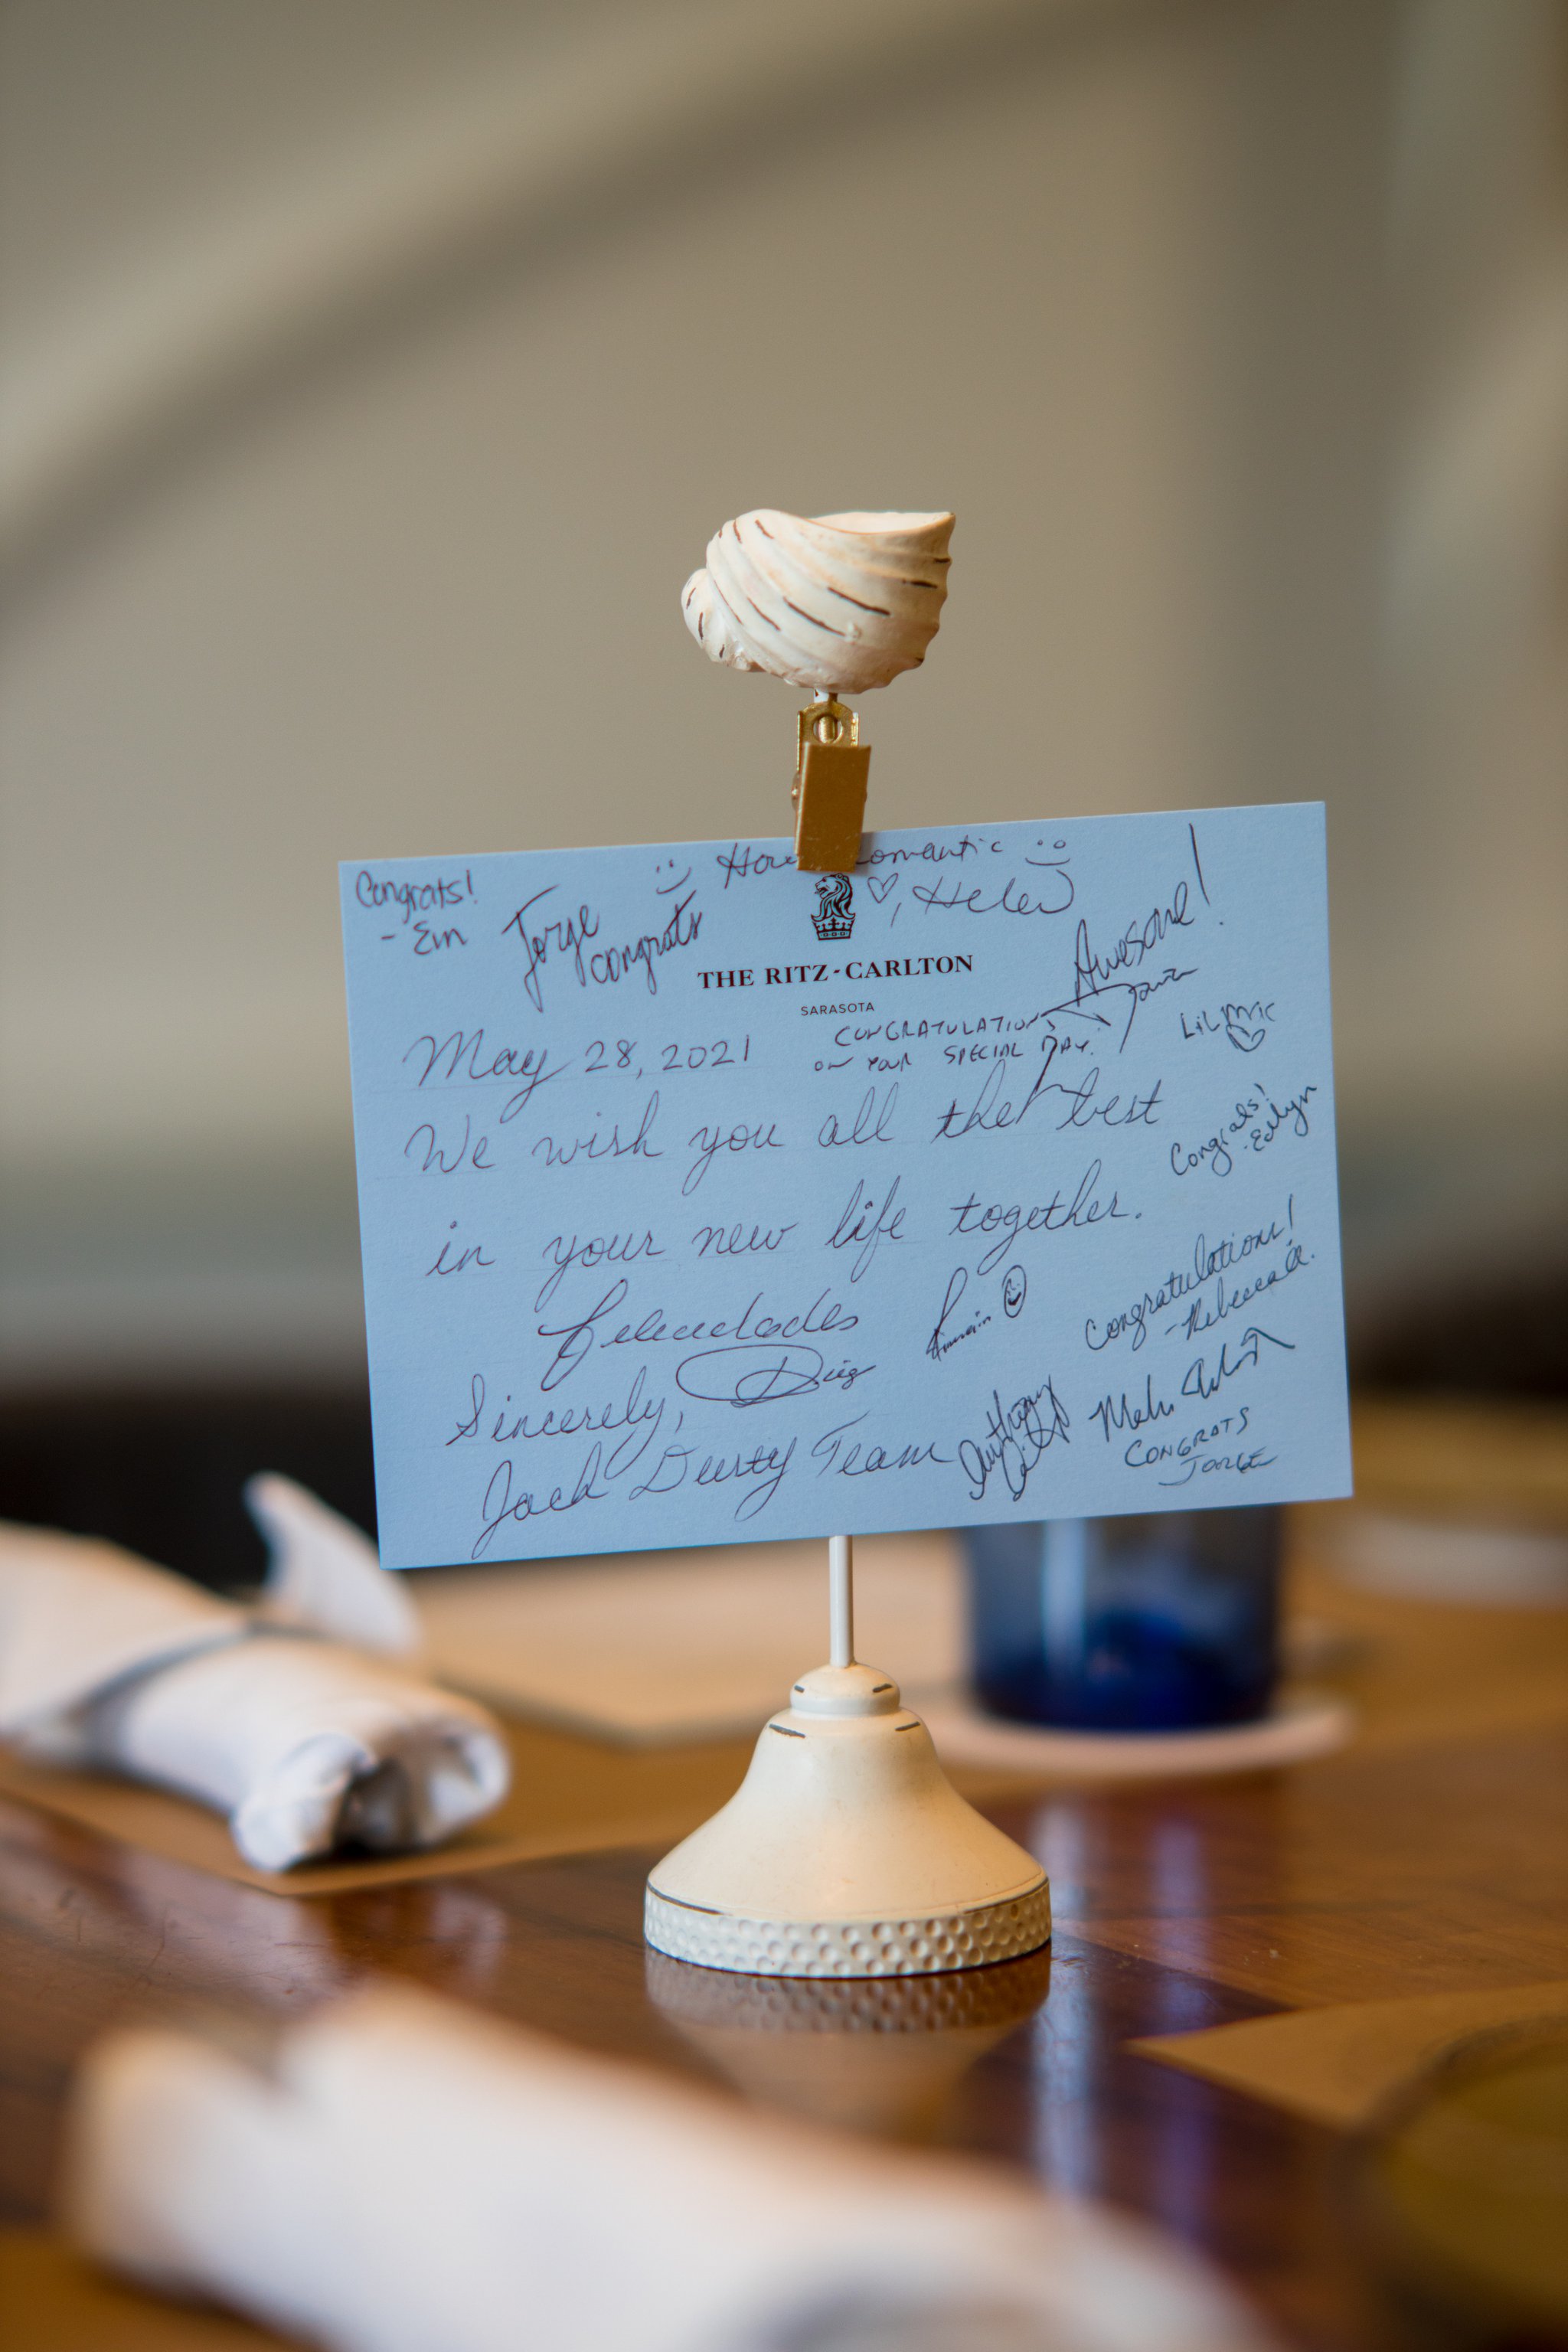 Congrats!
- Em
Jorge
congrats
romantic
Helen
THE RITZ-CARLTON
SARASOTA
Awesome!
CONGRATULATIONS
ON YOUR SPECIAL DAY!
May 28, 2021
Congrats!
We wish you all the best
in your new life together.
Congratulations!
-Rebecca
Felicidades
Sincerely,
Anthony
CONGRATS
JORGE
Jack Dusty Team